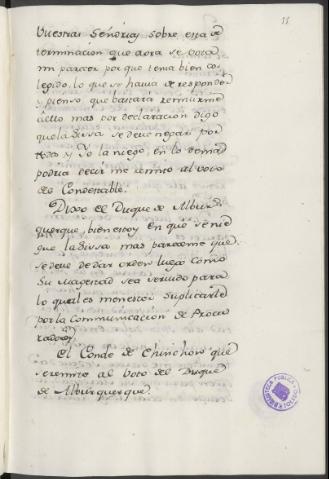 11
Vuestras Señorias sobre esta de
terminacion que aora se vota
mi parecer porque tenia bien co
legido lo que se havia de responder
y pienso que bastará remitirme
aello mas por declaracion digo
que la Sissa se deve negar por
todos y Yo la niego, en lo demas
podria decir me remito al voto
del Condestable.
Dixo el Duque de Alburq
querque, bien estoy en que se nie
gue la Sissa mas pareceme que
se deve de dar orden luego como
Su Magestad sea servido para
lo qual es menester suplicarle
por la Communicacion de Procu
radores
El Conde de Chinchon que
se remite al voto del Duque
de Alburquerque.
BIBLIOTECA PUBLICA
TOLEDO